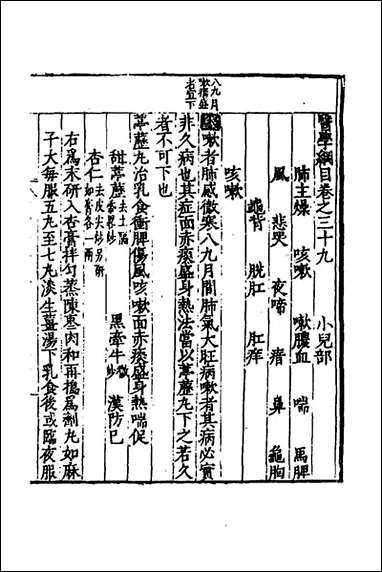 醫學綱目卷之三十九　小兒部
肺主燥　咳嗽　嗽膿血　喘　馬脾
風　悲哭　夜啼　瘖　鼻　龜胸
龜背　脫肛　肛痒
咳嗽
嗽者肺感微寒八九月間肺氣大肛病嗽者其病必實
非久病也其症面赤痰盛身熱法當以葶藶丸下之若久
者不可下也
八九月
嗽痰盛
者宜下
葶藶丸治乳食衝脾傷風咳嗽面赤痰盛身熱喘促
甜葶藶去土隔紙炒　黑牽牛炒　漢防已
杏仁去皮尖炒另研如膏各一兩
右爲末研入杏膏拌勻蒸陳棗肉和再搗爲劑丸如麻
子大每服五丸至七丸淡生薑湯下乳食後或臨夜服